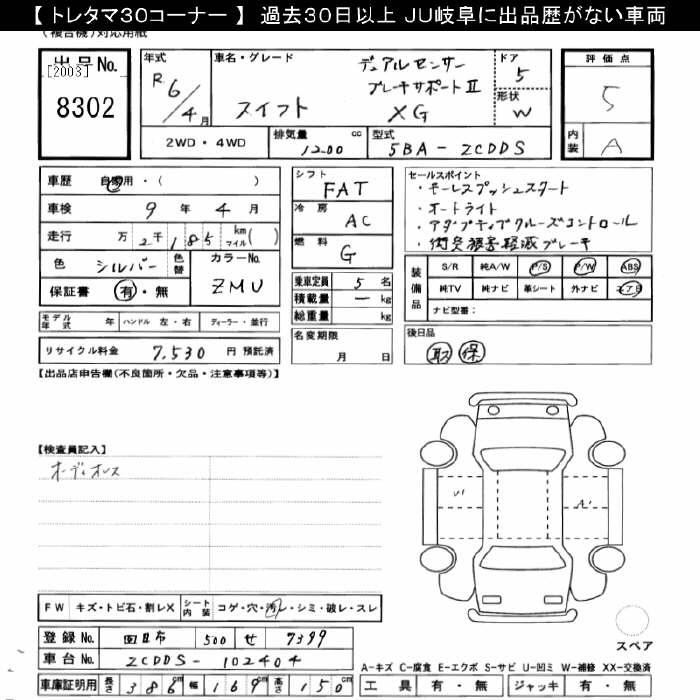 【 トレタマ30コーナー 】 過去30日以上 JU岐阜に出品歴がない車両
(複合機)対応用紙
出品No. [2003] 8302
年式 R.6/4月
車名・グレード スイフト デュアルセンサー ブレーキサポートII XG
ドア 5
形状 W
評価点 5
内装 A
2WD・4WD
排気量 1200 cc
型式 5BA-ZCDDS
車歴 自家用・( )
車検 9年4月
走行 万2千185 km マイル( )
色 シルバー 色替
カラーNo. ZMU
保証書 有・無
モデル年式 年 ハンドル 左・右 ディーラー・並行
リサイクル料金 7,530 円 預託済
シフト FAT
冷房 AC
燃料 G
乗車定員 5 名
積載量 ー kg
総重量 kg
名変期限 月 日
セールスポイント
・キーレスプッシュスタート
・オートライト
・アダプティブクルーズコントロール
・衝突被害軽減ブレーキ
装備品 S/R 純A/W P/S P/W ABS
純TV 純ナビ 革シート 外ナビ エアB
ナビ型番:
後日品
取 保
【出品店申告欄(不良箇所・欠品・注意事項等)】
【検査員記入】
オーディオレス
A1
スペア
FW キズ・トビ石・割レX シート内装 コゲ・穴・汚レ・シミ・破レ・スレ
登録No. 四日市 500 せ 7399
車台No. ZCDDS-102404
車庫証明用 長さ 386cm 幅 169cm 高さ 150cm
A-キズ C-腐食 E-エクボ S-サビ U-凹ミ W-補修 XX-交換済
工具 有・無 ジャッキ 有・無